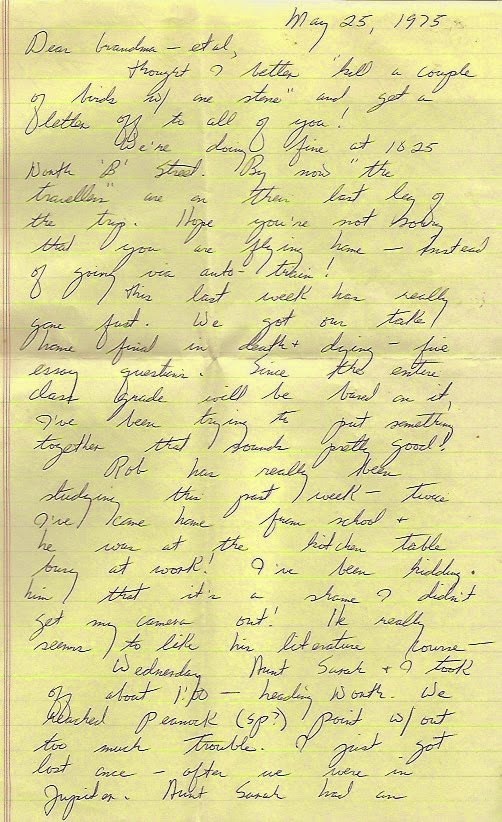 May 25, 1975
Dear Grandma - et al,
Thought I better "kill a couple
of birds w/ one stone" and get a
letter off to all of you!
We're doing fine at 1025
North "B" Street. By now "the
travellers" are on their last leg of
the trip. Hope you're not sorry
that you are flying home - instead
of going via auto-train!
This last week has really
gone fast. We got our take
home final in death + dying - five
essay questions. Since the entire
class grade will be based on it,
I've been trying to put something
together that sounds pretty good!
Rob has really been
studying this past week - twice
I've come home from school +
he was at the kitchen table
busy at work! I've been kidding
him that it's a shame I didn't
get my camera out! He really
seems to like his literature course -
Wednesday Aunt Sarah + I took
off about 1:00 - heading North. We
reached Peanock (sp?) Point w/out
too much trouble. I just got
lost once - after we were in
Jupiter. Aunt Sarah had an